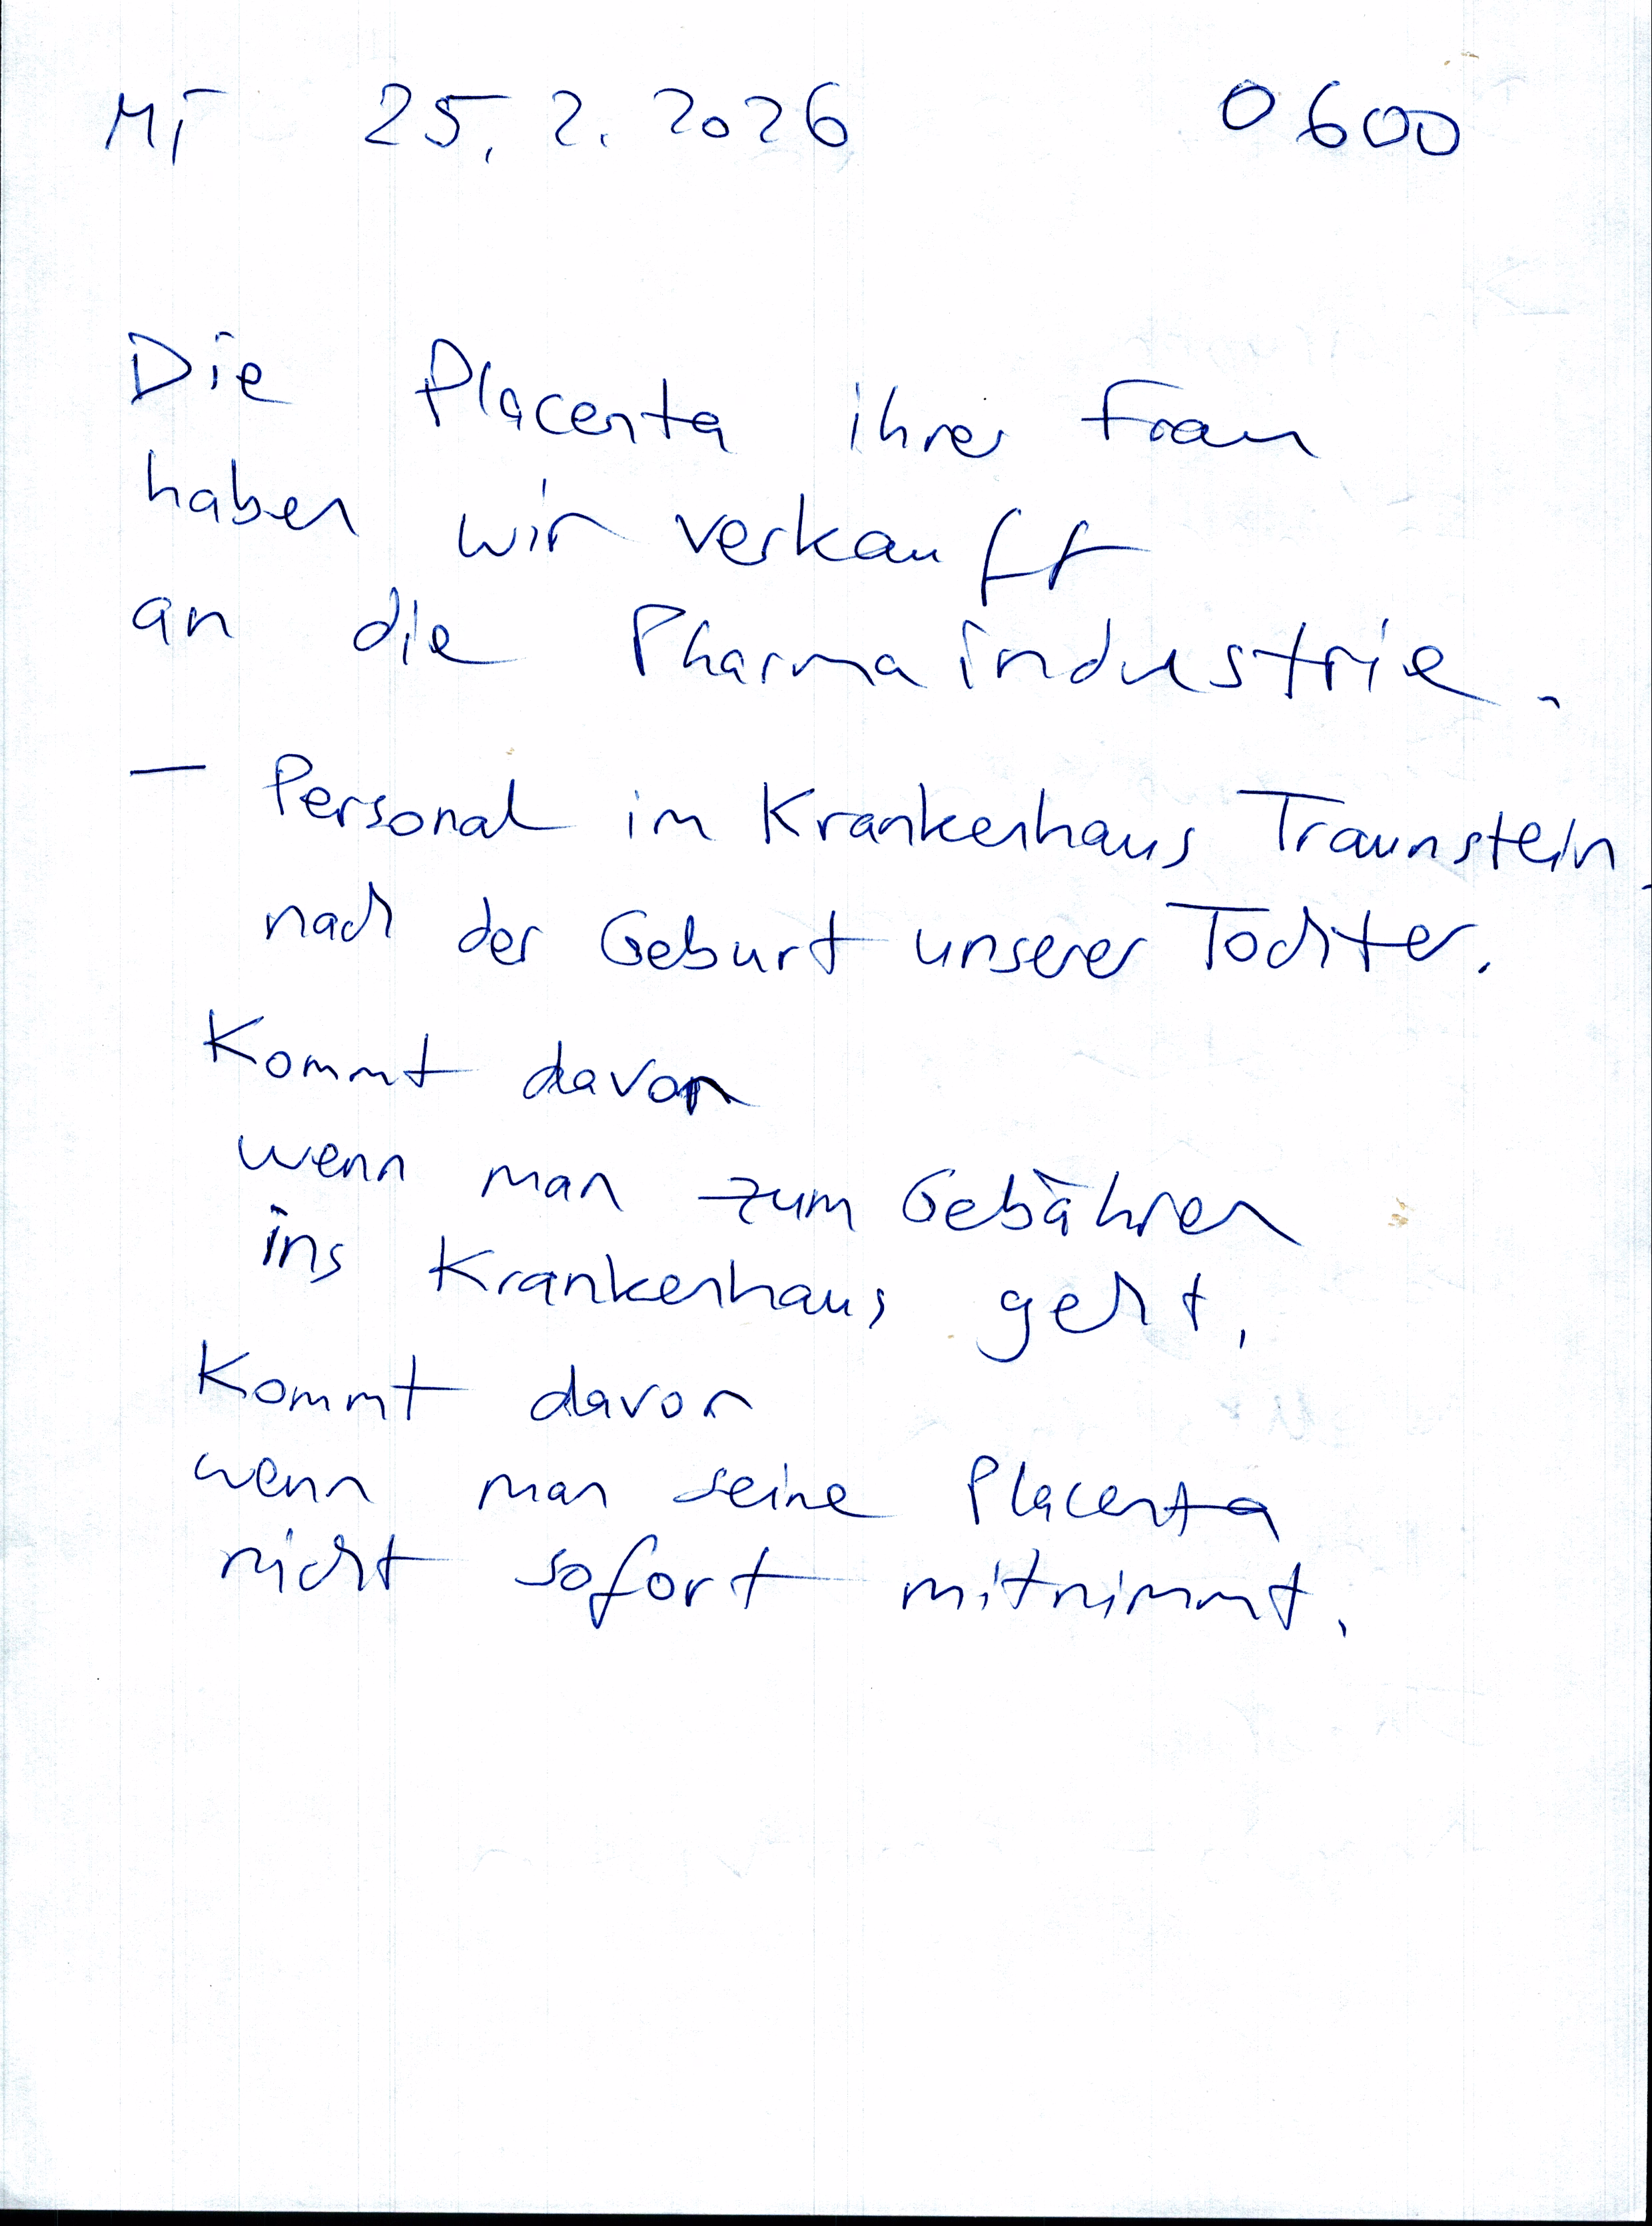 Mi 25.2.2026 0600
Die Placenta ihrer Frau
haben wir verkauft
an die Pharmaindustrie.
— Personal im Krankenhaus Traunstein
nach der Geburt unserer Tochter.
Kommt davon
wenn man zum Gebähren
ins Krankenhaus geht.
Kommt davon
wenn man seine Placenta
nicht sofort mitnimmt.